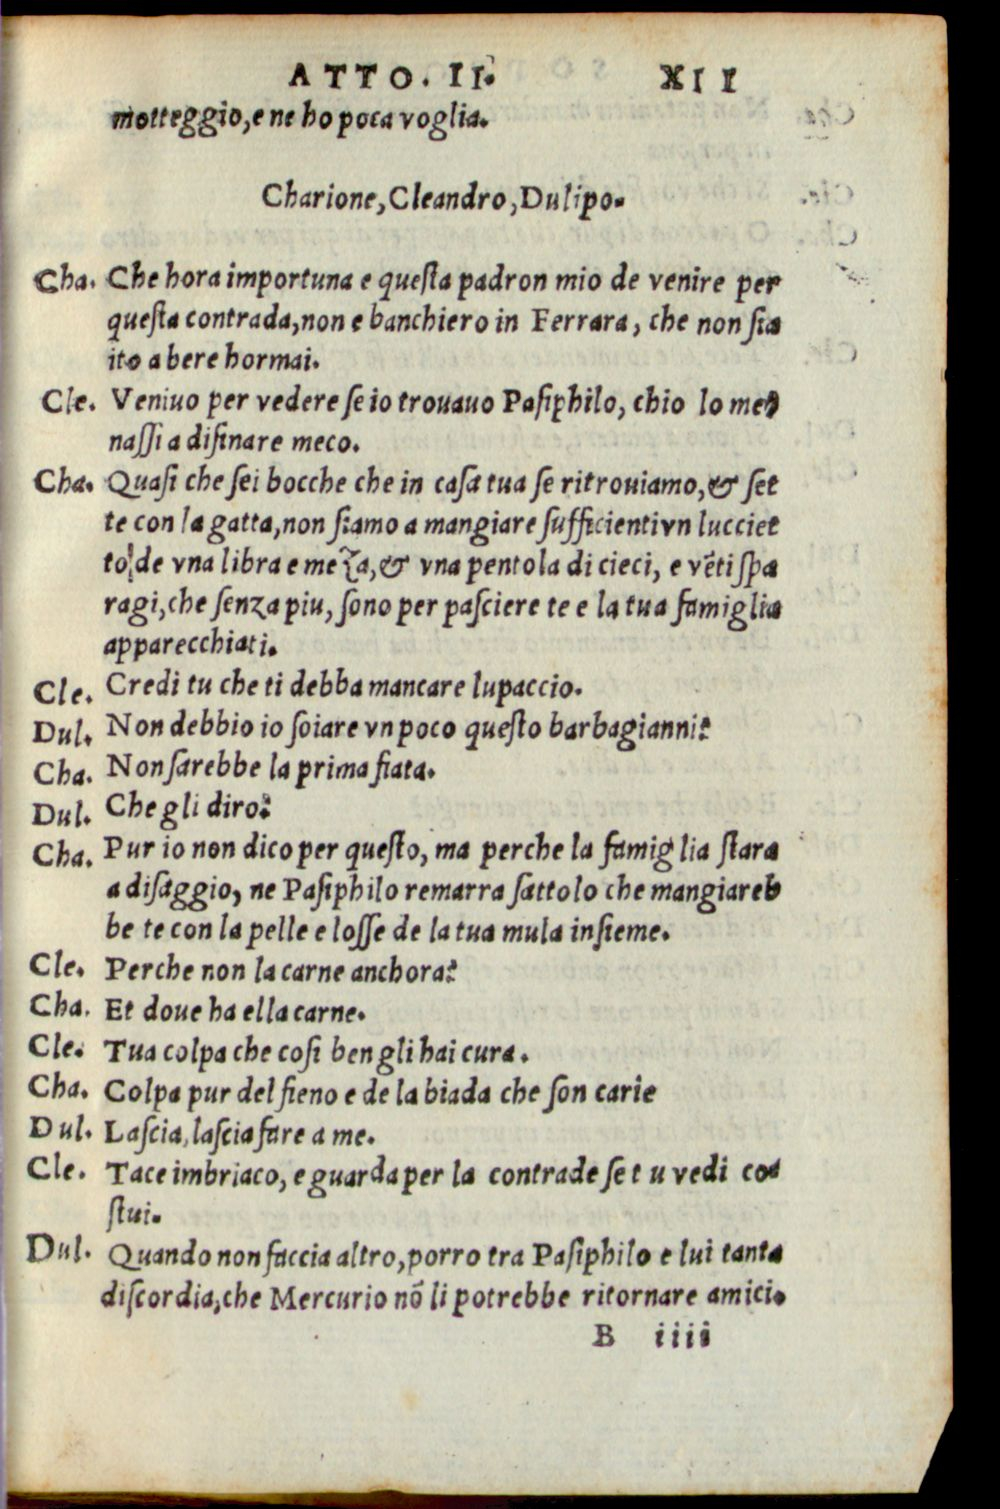 ATTO. II. XII
motteggio,e ne ho poca voglia.
Charione, Cleandro, Dulipo.
Cha. Che hora importuna e questa padron mio de venire per
questa contrada,non e banchiero in Ferrara, che non sia
ito a bere hormai.
Cle. Veniuo per vedere se io trouauo Pasiphilo, chio lo me
nassi a disinare meco.
Cha. Quasi che sei bocche che in casa tua se ritrouiamo,& set
te con la gatta,non siamo a mangiare sufficienti vn lucciet
to de vna libra e meza,& vna pentola di cieci, e vẽti spa
ragi,che senza piu, sono per pasciere te e la tua famiglia
apparecchiati.
Cle. Credi tu che ti debba mancare lupaccio.
Dul. Non debbio io soiare vn poco questo barbagianni?
Cha. Non sarebbe la prima fiata.
Dul. Che gli diro?
Cha. Pur io non dico per questo, ma perche la famiglia stara
a disaggio, ne Pasiphilo remarra sattolo che mangiareb
be te con la pelle e losse de la tua mula insieme.
Cle. Perche non la carne anchora?
Cha. Et doue ha ella carne.
Cle. Tua colpa che cosi ben gli hai cura.
Cha. Colpa pur del fieno e de la biada che son carie
Dul. Lascia,lascia fare a me.
Cle. Tace imbriaco, e guarda per la contrade se tu vedi co
stui.
Dul. Quando non faccia altro,porro tra Pasiphilo e lui tanta
discordia,che Mercurio nõ li potrebbe ritornare amici.
B iiii